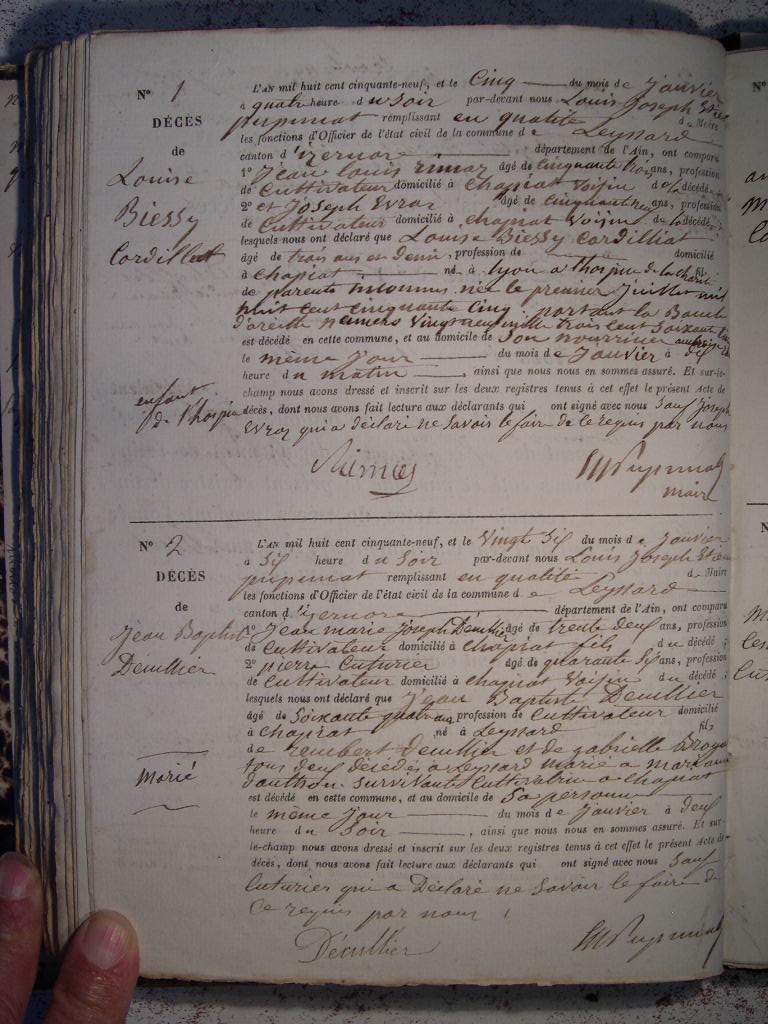 N° 1
DÉCÈS
de
Louise
Biessy
Cordillat
enfant
de l'hospice
L'AN mil huit cent cinquante-neuf, et le Cinq du mois de Janvier
à quatre heure du Soir par-devant nous Louis Joseph
pupunat remplissant en qualité de Maire
les fonctions d'Officier de l'état civil de la commune de Leyssard
canton d'izernore département de l'Ain, ont comparu
1° Jean Louis âgé de Cinquante trois ans, profession
de Cultivateur domicilié à chapiat Voisin d décédé
2° et Joseph Evroz âgé de Cinquante ans, profession
de Cultivateur domicilié à chapiat Voisin de la décédé
lesquels nous ont déclaré que Louise Biessy Cordilliat
âgé de trois ans en demi, profession de domicilié
à chapiat né à lyon a l'hospice de la charité fil
de parents inconnus née le premier Juillet mil
huit cent cinquante Cinq portant la Boucle
d'oreille numéro Vingt neuf mille trois Cent Soixante
est décédé en cette commune, et au domicile de Son nourricier
le même Jour du mois de Janvier à dix
heure du matin , ainsi que nous nous en sommes assuré. Et sur-le-
champ nous avons dressé et inscrit sur les deux registres tenus à cet effet le présent Acte de
décès, dont nous avons fait lecture aux déclarants qui ont signé avec nous Sauf Joseph
Evroz qui a déclaré ne Savoir le faire de le requis par nous
pupunat
maire
N° 2
DÉCÈS
de
Jean Baptiste
Décullier
Marié
L'AN mil huit cent cinquante-neuf, et le Vingt Six du mois de Janvier
à Six heure du Soir par-devant nous Louis Joseph
pupunat remplissant en qualité de Maire
les fonctions d'Officier de l'état civil de la commune de Leyssard
canton d'izernore département de l'Ain, ont comparu
1° Jean marie Joseph Décullier âgé de trente deux ans, profession
de Cultivateur domicilié à chapiat fils du décédé ;
2° pierre Cuturier âgé de quarante Six ans, profession
de Cultivateur domicilié à chapiat Voisin du décédé ;
lesquels nous ont déclaré que Jean Baptiste Decullier
âgé de Soixante quatre ans profession de Cultivateur domicilié
à chapiat né à Leyssard fils
de Decullier et de gabrielle
tous deux décédés a Leyssard marié a
Survivant Cultivatrice a chapiat
est décédé en cette commune, et au domicile de Sa personne
le même Jour du mois de Janvier à deux
heure du Soir , ainsi que nous nous en sommes assuré. Et sur-
le-champ nous avons dressé et inscrit sur les deux registres tenus à cet effet le présent Acte de
décès, dont nous avons fait lecture aux déclarants qui ont signé avec nous Sauf
Cuturier qui a Déclaré ne Savoir le faire de
Ce requis par nous
Décullier
pupunat